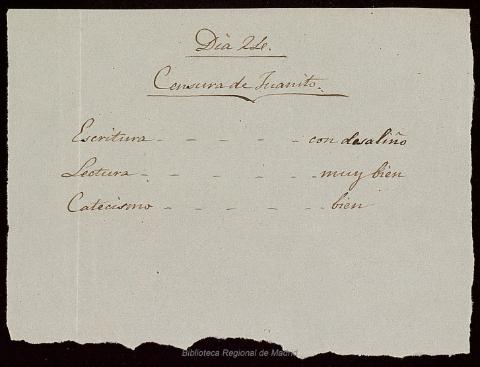 Dia 24.
Censura de Juanito.
Escritura - - - - - con desaliño
Lectura - - - - - muy bien
Catecismo - - - - - bien
Biblioteca Regional de Madrid